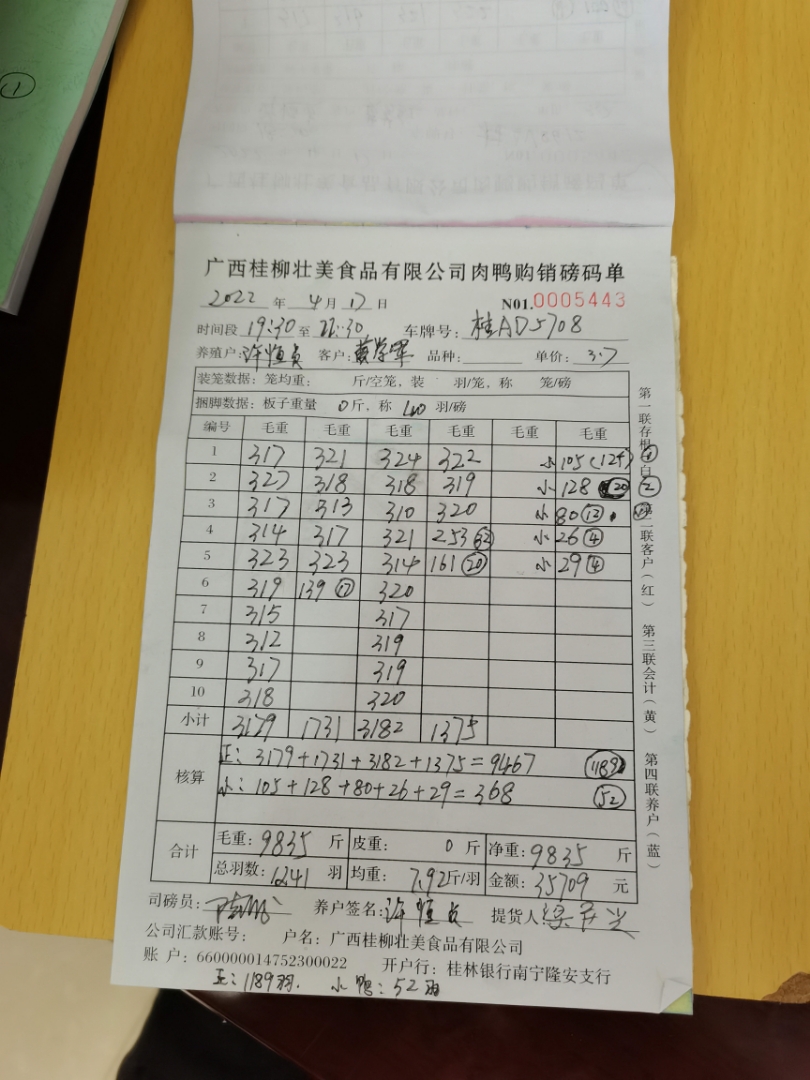 广西桂柳壮美食品有限公司肉鸭购销磅码单
2022 年 4 月 17 日 N01.0005443
时间段 19:30 至 22:30 车牌号: 桂AD5708
养殖户: 许恒贞 客户: 品种: 单价: 3.7
装笼数据: 笼均重: 斤/空笼, 装 羽/笼, 称 笼/磅
捆脚数据: 板子重量 0斤, 称 40 羽/磅
编号 毛重 毛重 毛重 毛重 毛重 毛重
1 317 321 324 322 小105
2 327 318 318 319 小128 20
3 317 313 310 320 小80 ⑫
4 314 317 321 253 32 小26 ④
5 323 323 314 161 ⑳ 小29 ④
6 319 139 320
7 315 317
8 312 319
9 317 319
10 318 320
小计 3179 1731 3182 1375
核算
正: 3179+1731+3182+1375=9467 1189
小: 105+128+80+26+29=368 52
合计
毛重: 9835 斤 皮重: 0 斤 净重: 9835 斤
总羽数: 1241 羽 均重: 7.92斤/羽 金额: 35709 元
司磅员: 养户签名: 许恒贞 提货人:
公司汇款账号: 户名: 广西桂柳壮美食品有限公司
账 户: 660000014752300022 开户行: 桂林银行南宁隆安支行
正: 1189羽. 小鸭: 52羽
第一联存根(白) 第二联客户(红) 第三联会计(黄) 第四联养户(蓝)
①